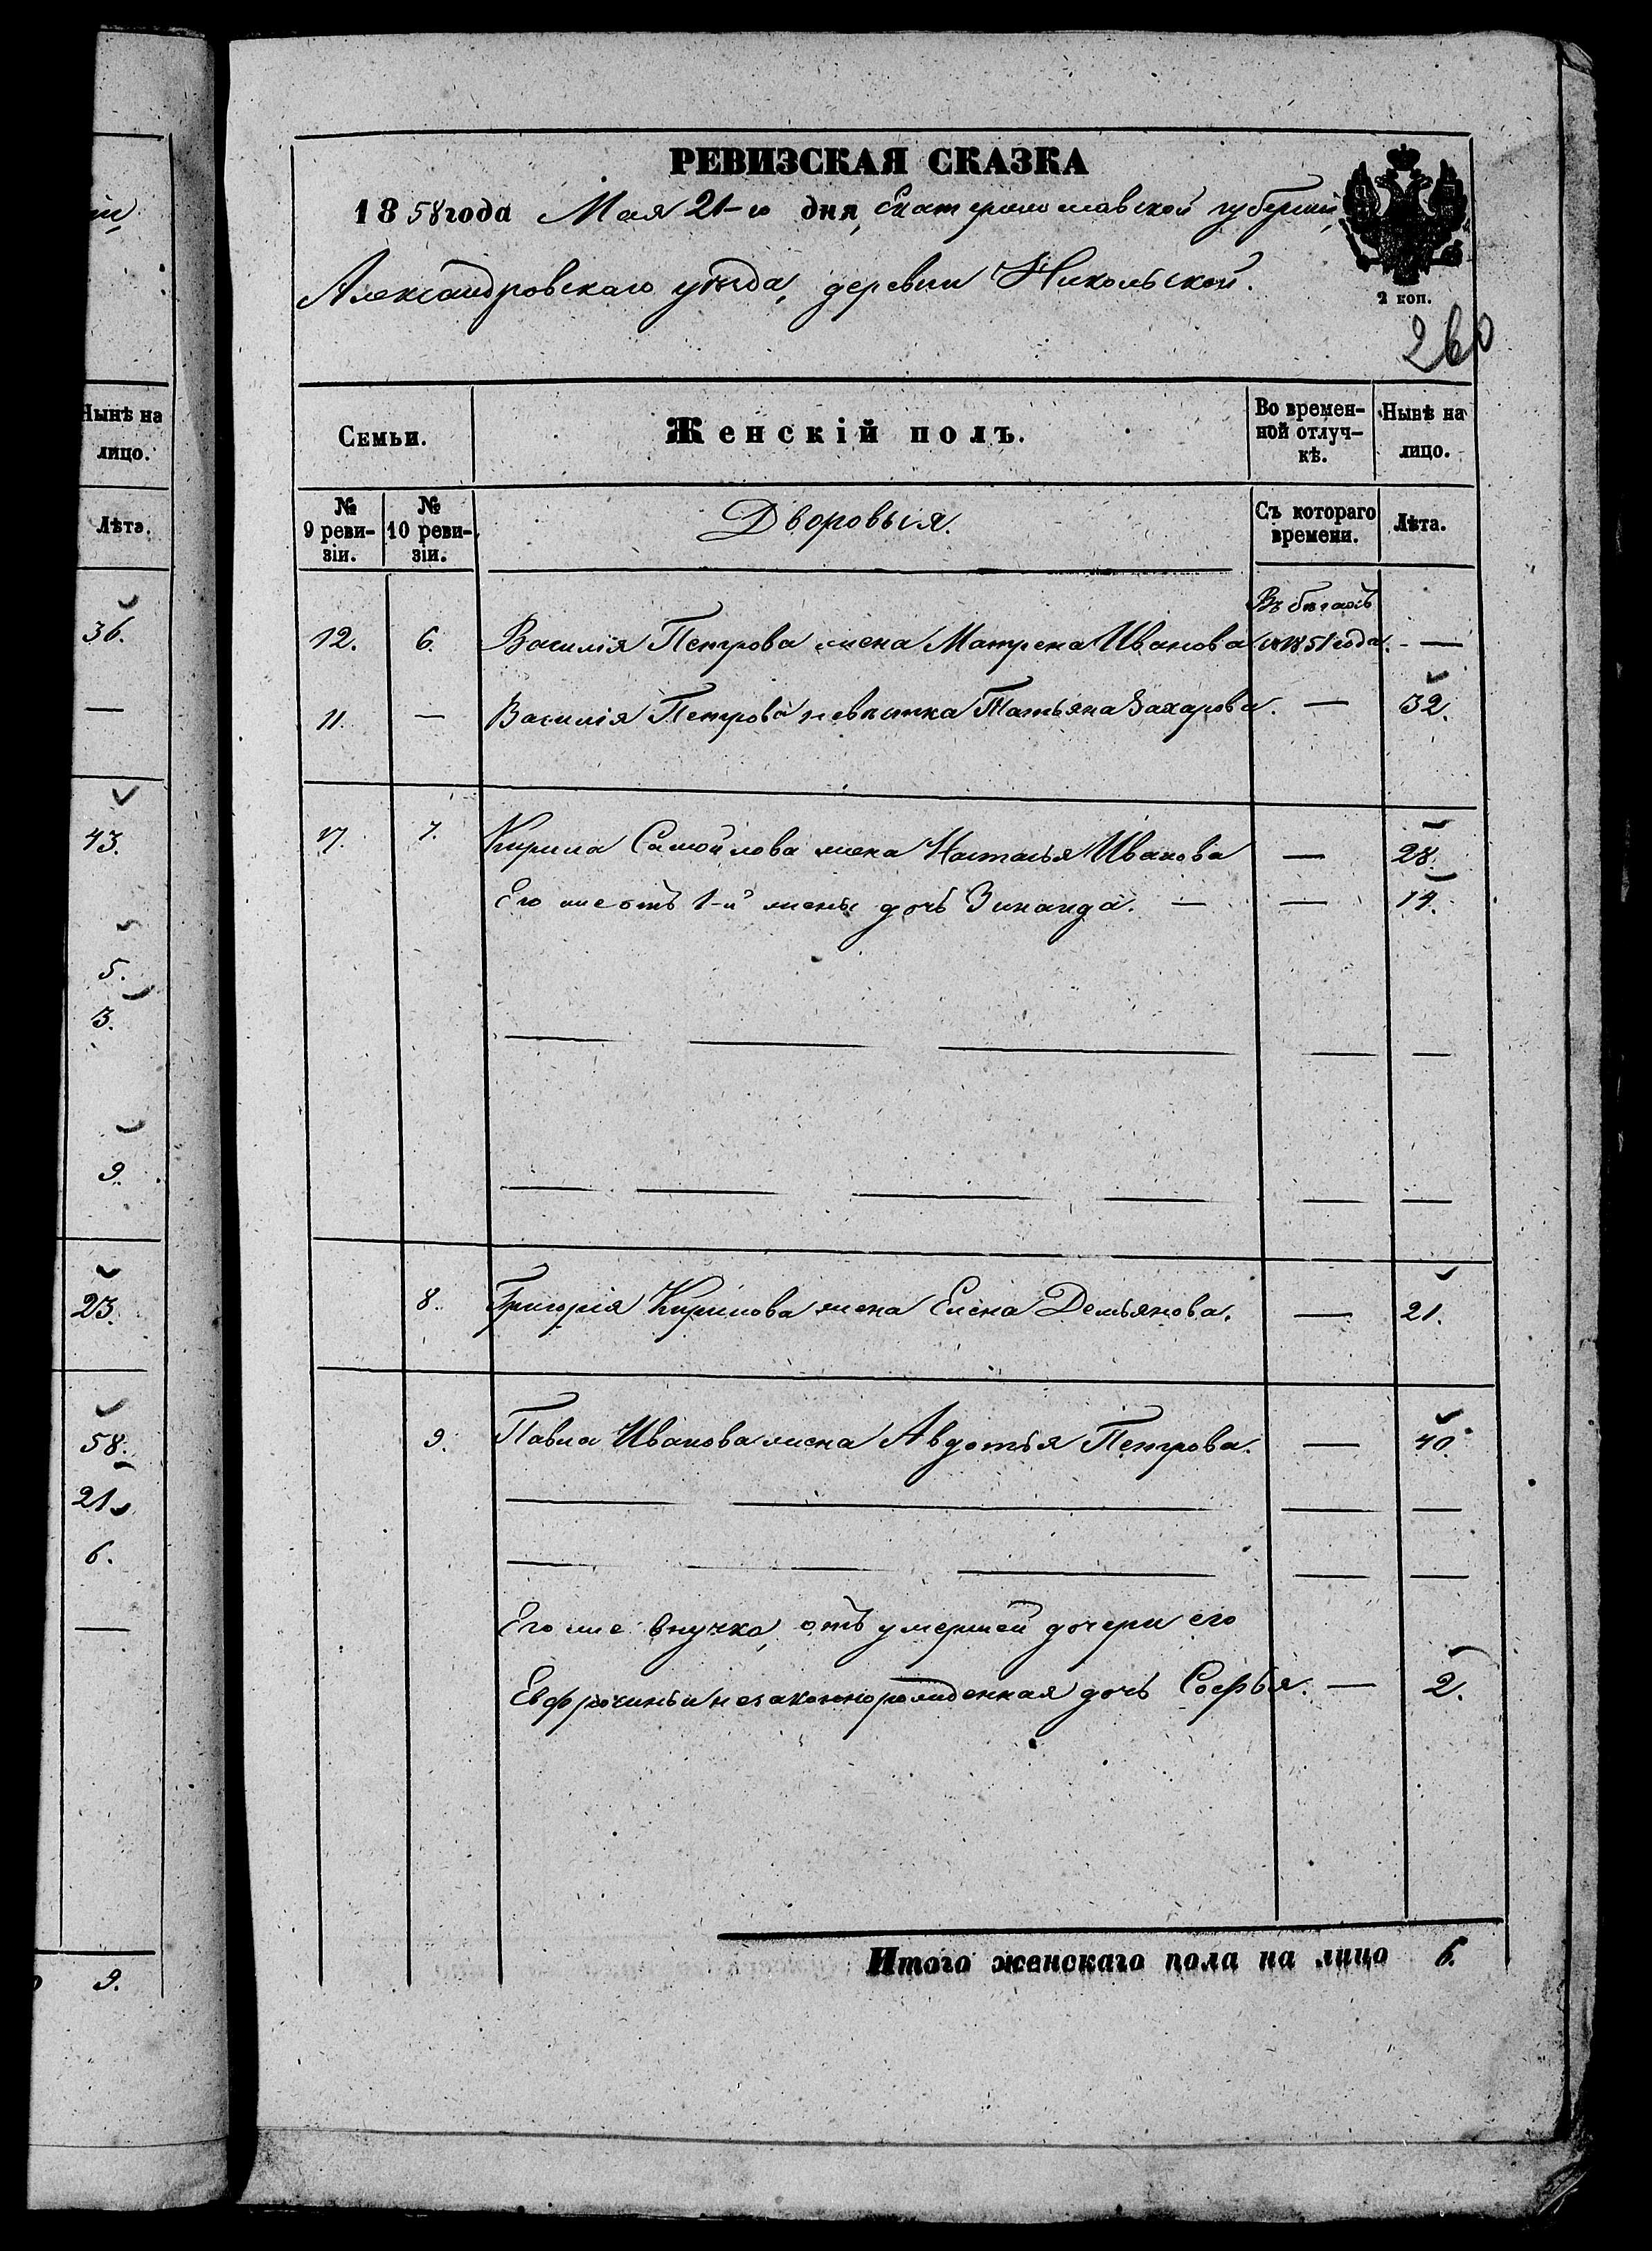 РЕВИЗСКАЯ СКАЗКА
1858 года Мая 21-го дня, Екатеринославской губерніи,
Александровскаго уѣзда, деревни Никольской.
2 коп.
260
Семьи.
Женскій полъ.
Во времен-
ной отлуч-
кѣ.
Нынѣ на
лицо.
№
9 реви-
зіи.
№
10 реви-
зіи.
Дворовыя.
Съ котораго
времени.
Лѣта.
Въ бѣгахъ
12. 6. Василія Петрова жена Матрена Иванова съ 1851 года. —
11. — Василія Петрова невѣстка Татьяна Захарова. — 32.
17. 7. Кирила Самойлова жена Настасья Иванова — 28.
Его же отъ 1-й жены дочь Зинаида. — — 14.
8. Григорія Кирилова жена Елена Демьянова. — 21.
9. Павла Иванова жена Авдотья Петрова. — 40.
Его же внучка, отъ умершей дочери его
Евфросиньи незаконнорожденная дочь Софья. — 2.
Итого женскаго пола на лицо 6.
Нынѣ на
лицо.
Лѣта.
36.
—
43.
5.
3.
9.
23.
58.
21.
6.
—
9.